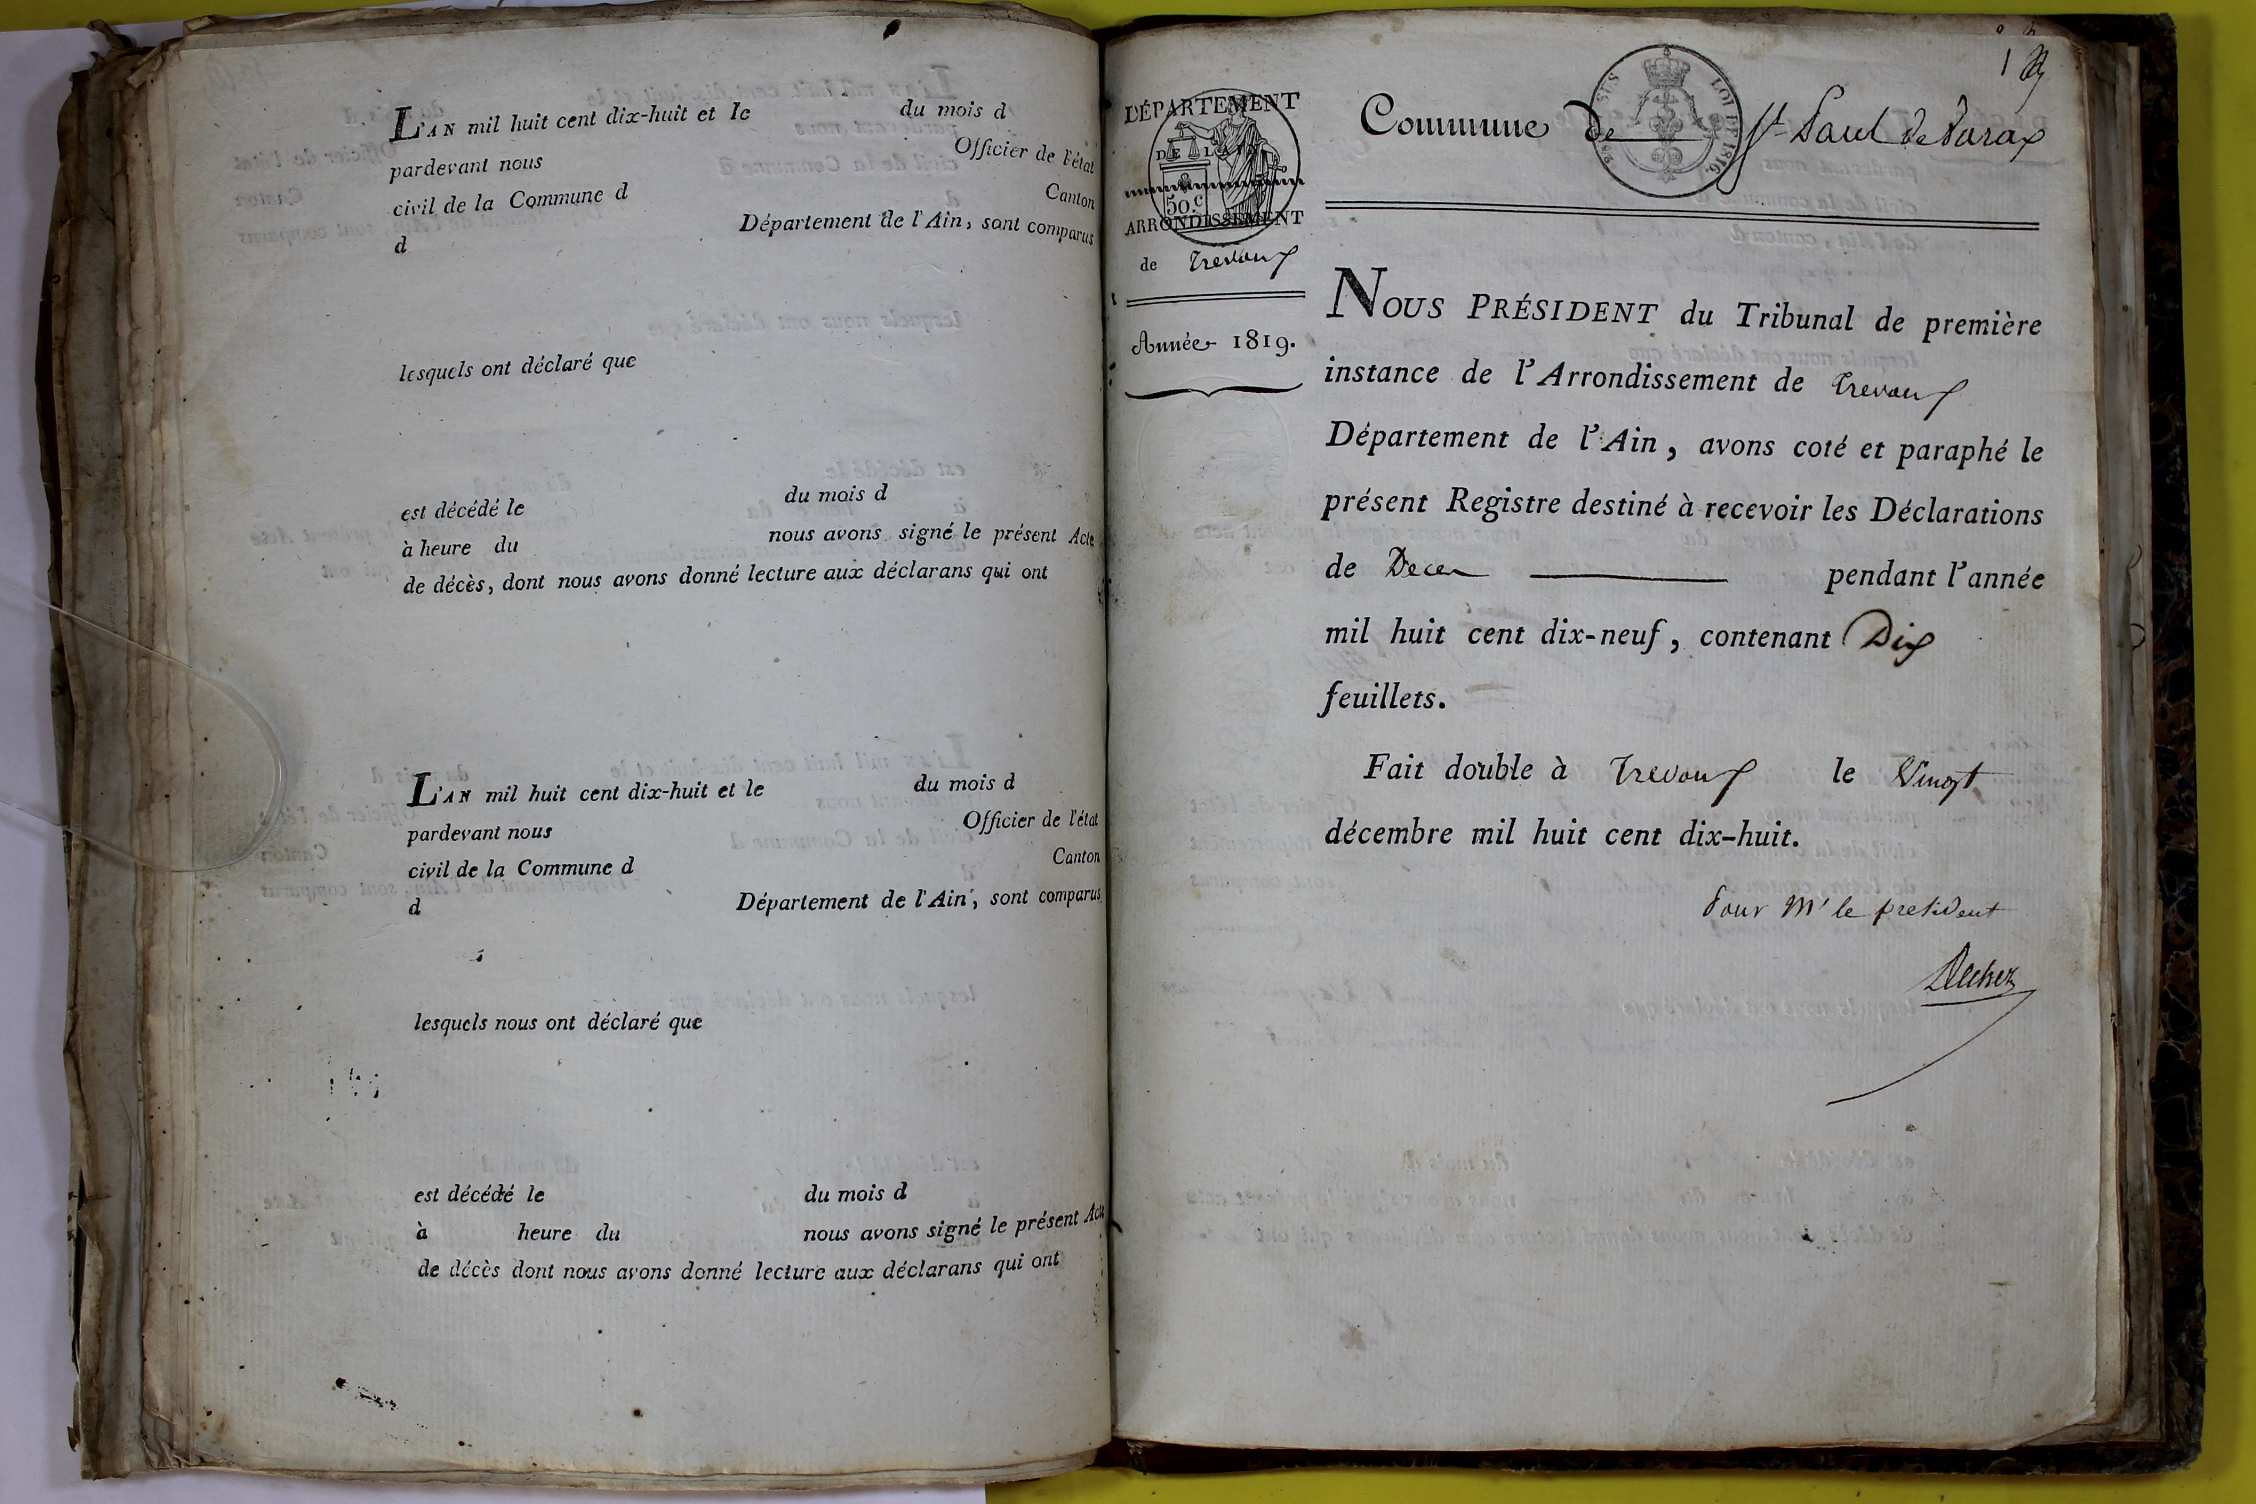 L'AN mil huit cent dix-huit et le du mois d
pardevant nous Officier de l'état
civil de la Commune d Canton
d Département de l'Ain, sont comparus
lesquels ont déclaré que
est décédé le du mois d
à heure du nous avons signé le présent Acte
de décès, dont nous avons donné lecture aux déclarans qui ont
L'AN mil huit cent dix-huit et le du mois d
pardevant nous Officier de l'état
civil de la Commune d Canton
d Département de l'Ain, sont comparus
lesquels nous ont déclaré que
est décédé le du mois d
à heure du nous avons signé le présent Acte
de décès dont nous avons donné lecture aux déclarans qui ont
1
DÉPARTEMENT
DE L'AIN
50 c
ARRONDISSEMENT
de Trevoux
Année 1819.
Commune de St Paul de Varax
LOI DE 1816.
NOUS PRÉSIDENT du Tribunal de première
instance de l'Arrondissement de Trevoux
Département de l'Ain, avons coté et paraphé le
présent Registre destiné à recevoir les Déclarations
de Deces pendant l'année
mil huit cent dix-neuf, contenant Dix
feuillets.
Fait double à Trevoux le Vingt
décembre mil huit cent dix-huit.
Pour Mr le president